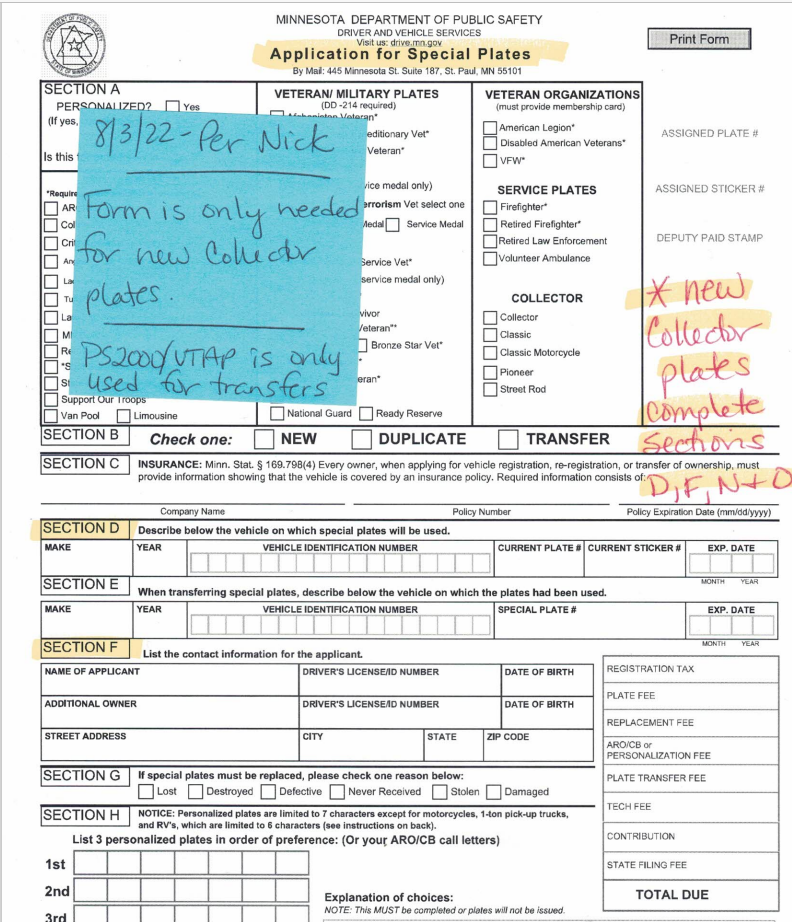 MINNESOTA DEPARTMENT OF PUBLIC SAFETY
DRIVER AND VEHICLE SERVICES
Visit us: drive.mn.gov
Application for Special Plates
By Mail: 445 Minnesota St. Suite 187, St. Paul, MN 55101
Print Form
SECTION A
PERSONALIZED? Yes
(If yes,
Is this
*Require
AR
Col
Crit
La
Tu
La
MI
Re
*S
St
Support Our Troops
Van Pool Limousine
8/3/22 - Per Nick
Form is only needed
for new Collector
plates.
PS2000/VTAP is only
used for transfers
VETERAN/ MILITARY PLATES
(DD -214 required)
Veteran*
editionary Vet*
Veteran*
ice medal only)
errorism Vet select one
Medal Service Medal
Service Vet*
service medal only)
vivor
eteran**
Bronze Star Vet*
eran*
National Guard Ready Reserve
VETERAN ORGANIZATIONS
(must provide membership card)
American Legion*
Disabled American Veterans*
VFW*
SERVICE PLATES
Firefighter*
Retired Firefighter*
Retired Law Enforcement
Volunteer Ambulance
COLLECTOR
Collector
Classic
Classic Motorcycle
Pioneer
Street Rod
ASSIGNED PLATE #
ASSIGNED STICKER #
DEPUTY PAID STAMP
* new
Collector
plates
complete
Sections
D, F, N + O
SECTION B Check one: NEW DUPLICATE TRANSFER
SECTION C INSURANCE: Minn. Stat. § 169.798(4) Every owner, when applying for vehicle registration, re-registration, or transfer of ownership, must
provide information showing that the vehicle is covered by an insurance policy. Required information consists of:
Company Name Policy Number Policy Expiration Date (mm/dd/yyyy)
SECTION D Describe below the vehicle on which special plates will be used.
MAKE YEAR VEHICLE IDENTIFICATION NUMBER CURRENT PLATE # CURRENT STICKER # EXP. DATE
MONTH YEAR
SECTION E When transferring special plates, describe below the vehicle on which the plates had been used.
MAKE YEAR VEHICLE IDENTIFICATION NUMBER SPECIAL PLATE # EXP. DATE
MONTH YEAR
SECTION F List the contact information for the applicant.
NAME OF APPLICANT DRIVER'S LICENSE/ID NUMBER DATE OF BIRTH
ADDITIONAL OWNER DRIVER'S LICENSE/ID NUMBER DATE OF BIRTH
STREET ADDRESS CITY STATE ZIP CODE
SECTION G If special plates must be replaced, please check one reason below:
Lost Destroyed Defective Never Received Stolen Damaged
SECTION H NOTICE: Personalized plates are limited to 7 characters except for motorcycles, 1-ton pick-up trucks,
and RV's, which are limited to 6 characters (see instructions on back).
List 3 personalized plates in order of preference: (Or your ARO/CB call letters)
1st
2nd
3rd
Explanation of choices:
NOTE: This MUST be completed or plates will not be issued.
REGISTRATION TAX
PLATE FEE
REPLACEMENT FEE
ARO/CB or
PERSONALIZATION FEE
PLATE TRANSFER FEE
TECH FEE
CONTRIBUTION
STATE FILING FEE
TOTAL DUE